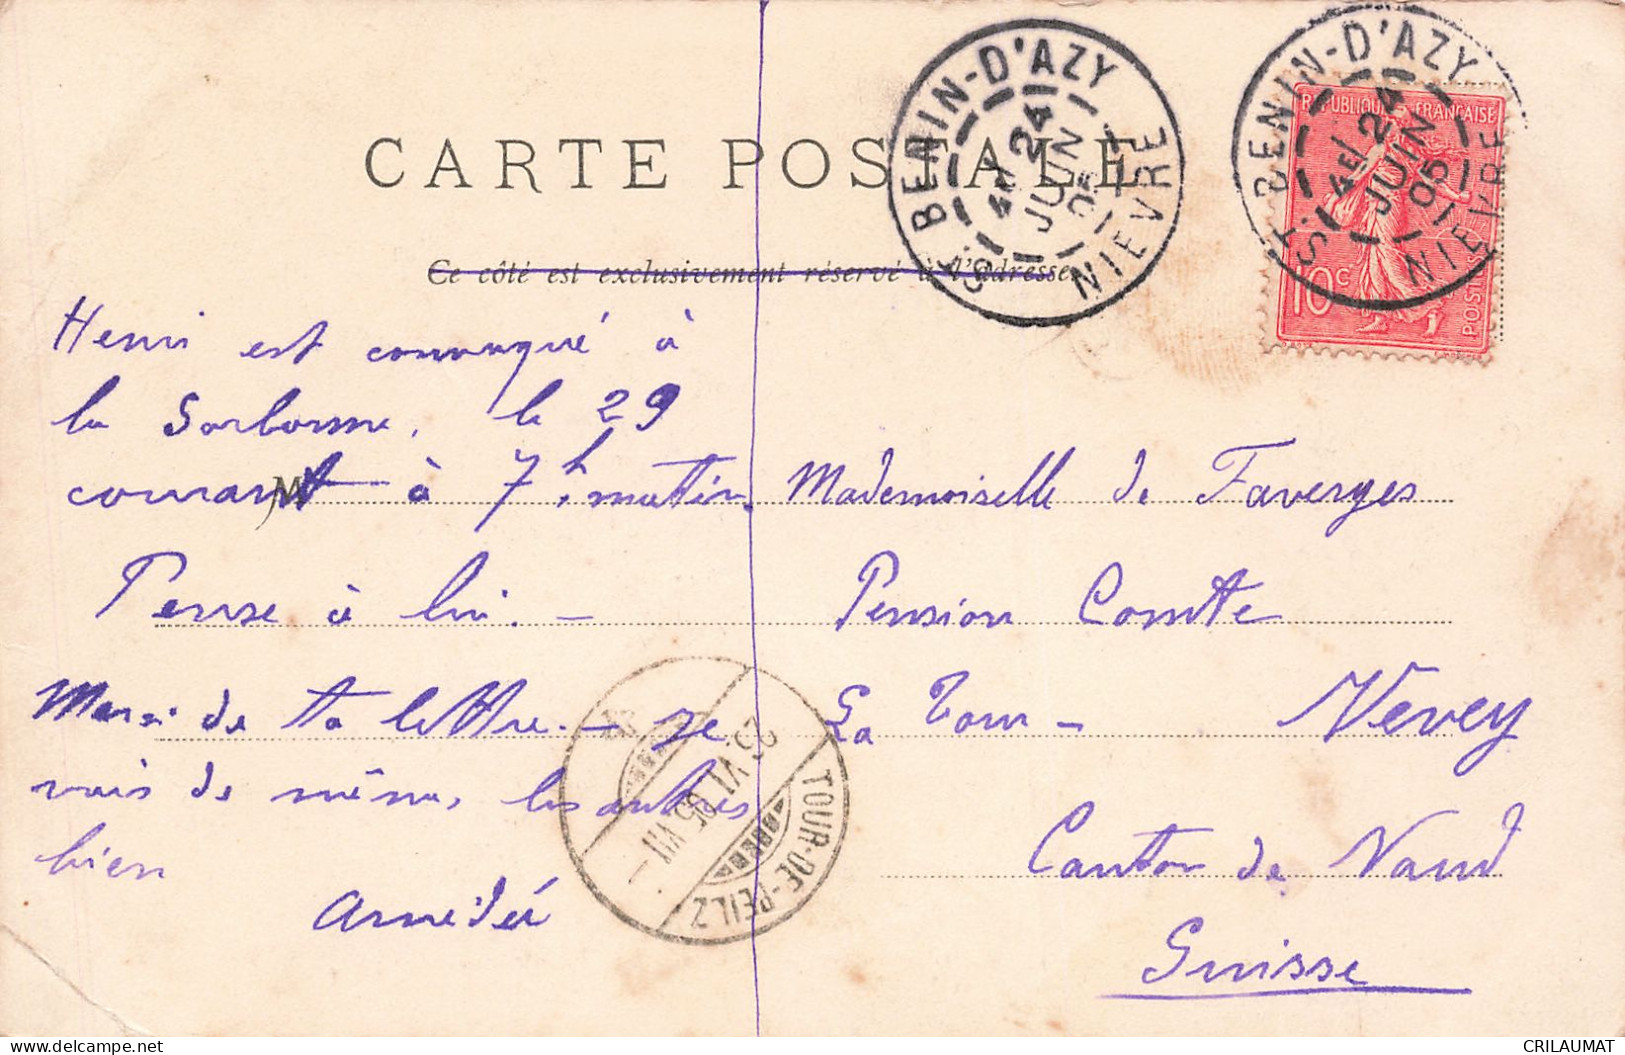 CARTE POSTALE
Ce côté est exclusivement réservé à l'adresse
ST. BENIN-D'AZY
4E/
24
JUIN
05
NIEVRE
ST. BENIN-D'AZY
4E/
24
JUIN
05
NIEVRE
REPUBLIQUE FRANÇAISE
10c
POSTES
Henri est convoqué à
la Sorbonne, le 29
courant à 7h. matin.
Pense à lui. –
Merci de ta lettre. – Je
vais de même, les autres
bien
Amédée
Mademoiselle de Faverges
Pension Comte
La Tour – Vevey
Canton de Vaud
Suisse
25.VI.05.VII–
TOUR-DE-PEILZ
CRILAUMAT